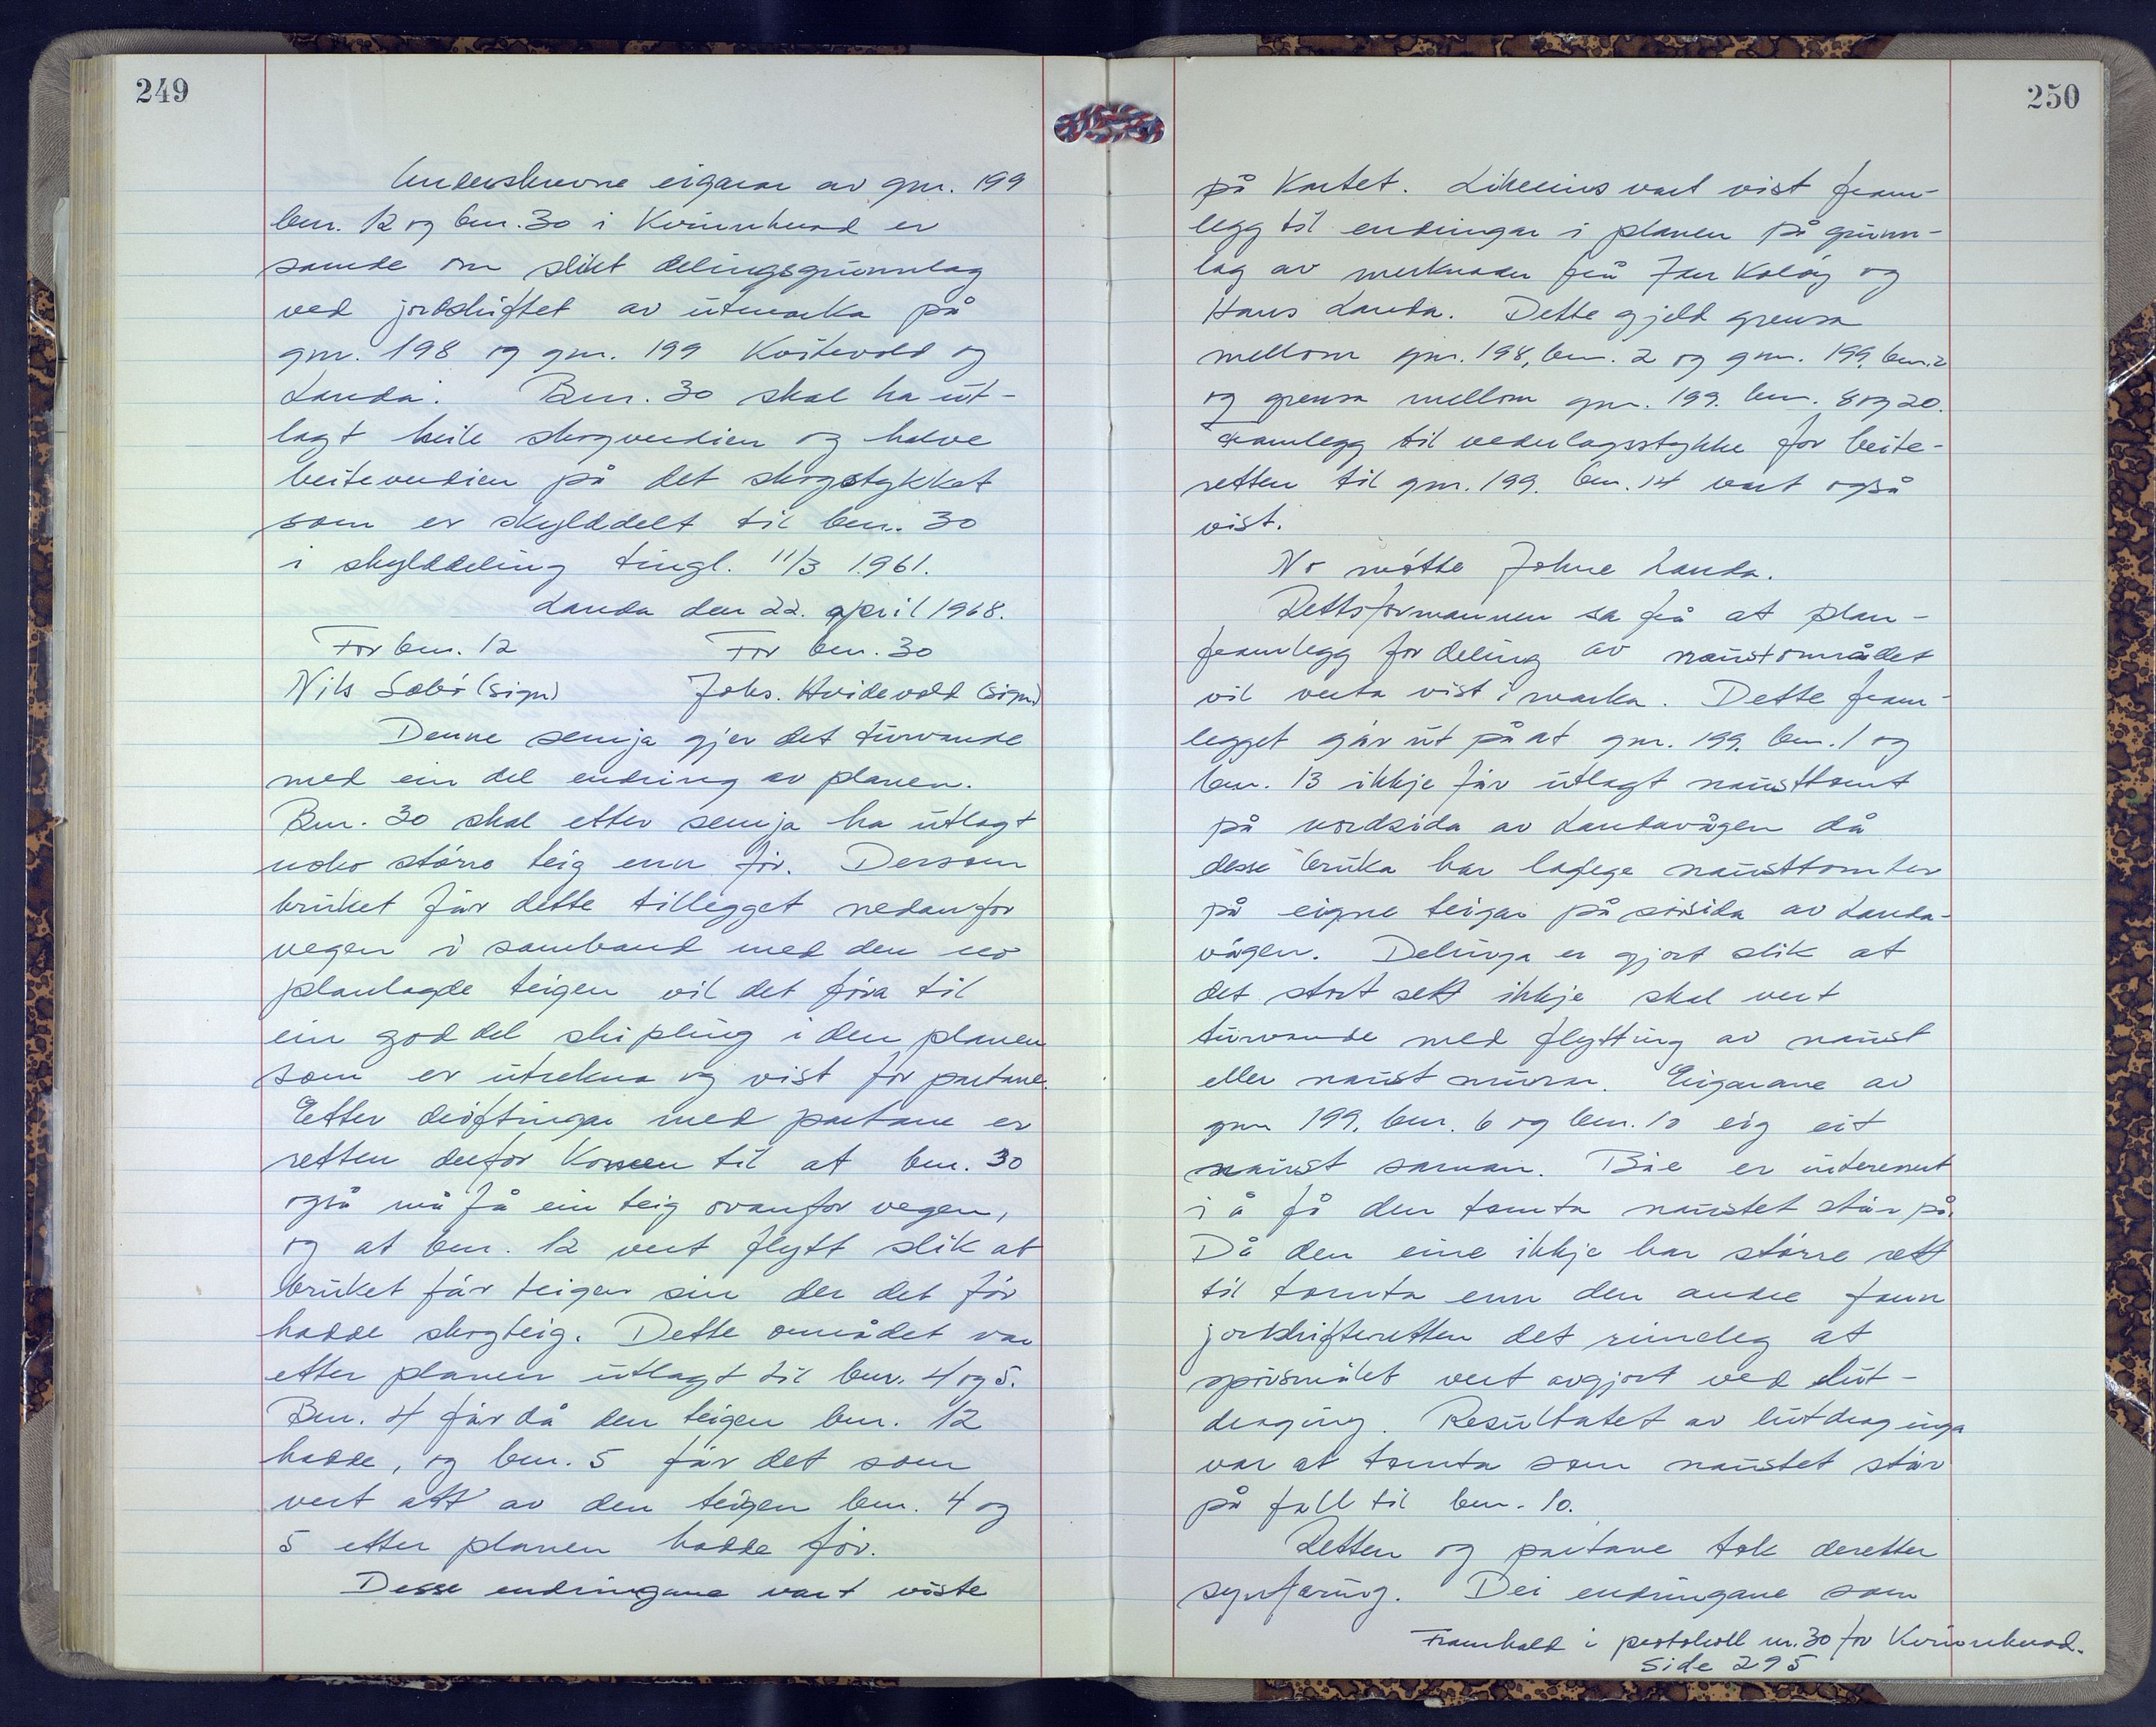 249
Underskrevne eigarar av gnr. 199
bnr. 12 og bnr. 30 i Kvinnherad er
samde om slikt delingsgrunnlag
ved jordskiftet av utmarka på
gnr. 198 og gnr. 199 Kvitevold og
Landa: Bnr. 30 skal ha ut-
lagt heile skogverdien og halve
beiteverdien på det skogstykket
som er skylddelt til bnr. 30
i skylddeling tingl. 11/3 1961.
Landa den 22. april 1968.
For bnr. 12 For bnr. 30
Nils Sæbø (sign) Johs. Hvidevold (sign)
Denne semja gjer det turvande
med ein del endring av planen.
Bnr. 30 skal etter semja ha utlagt
noko større teig enn før. Dersom
bruket får dette tillegget nedanfor
vegen i samband med den no
planlagde teigen vil det føra til
ein god del skipling i den planen
som er utrekna og vist for partane.
Etter drøftingar med partane er
retten derfor komen til at bnr. 30
også må få ein teig ovanfor vegen,
og at bnr. 12 vert flytt slik at
bruket får teigen sin der det før
hadde skogteig. Dette området var
etter planen utlagt til bnr. 4 og 5.
Bnr. 4 får då den teigen bnr. 12
hadde, og bnr. 5 får det som
vert att av den teigen bnr. 4 og
5 etter planen hadde før.
Desse endringane vart viste
250
på kartet. Likeeins vart vist fram-
legg til endringar i planen på grunn-
lag av merknader frå Jan Kaløy og
Hans Landa. Dette gjeld grensa
mellom gnr. 198, bnr. 2 og gnr. 199, bnr. 2
og grensa mellom gnr. 199. bnr. 8 og 20.
Framlegg til vederlagsstykke for beite-
retten til gnr. 199. bnr. 14 vart også
vist.
No møtte Johne Landa.
Rettsformannen sa frå at plan-
framlegg for deling av naustområdet
vil verta vist i marka. Dette fram-
legget går ut på at gnr. 199. bnr. 1 og
bnr. 13 ikkje får utlagt nausttomt
på nordsida av Landavågen då
desse bruka har lagege nausttomter
på eigne teigar på sørsida av Landa-
vågen. Delinga er gjort slik at
det stort sett ikkje skal vert
turvande med flytting av naust
eller naust murar. Eigarane av
gnr 199. bnr. 6 og bnr. 10 eig eit
naust saman. Båe er interessert
i å få den tomta naustet står på.
Då den eine ikkje har større rett
til tomta enn den andre fann
jordskifteretten det rimeleg at
spørsmålet vert avgjort ved lut-
draging. Resultatet av lutdraginga
var at tomta som naustet står
på fall til bnr. 10.
Retten og partane tok deretter
synfaring. Dei endringane som
Framhald i protokoll nr. 30 for Kvinnherad.
side 295